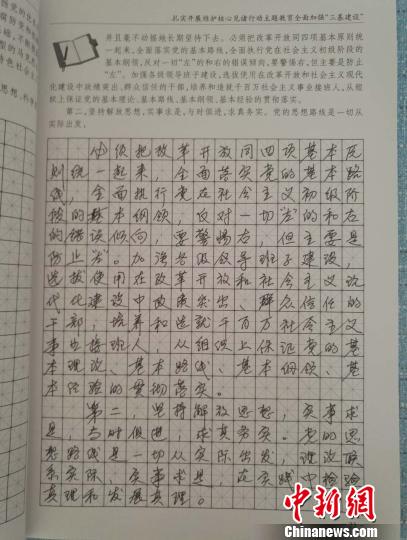 扎实开展维护核心见诸行动主题教育全面加强“三基建设”
并且毫不动摇地长期坚持下去。必须把改革开放同四项基本原则统
一起来，全面落实党的基本路线，全面执行党在社会主义初级阶段
的基本纲领，反对一切“左”的和右的错误倾向，要警惕右，但主要是防
止“左”。加强各级领导班子建设，选拔使用在改革开放和社会主义现代
化建设中政绩突出、群众信任的干部，培养和造就千百万社会主义事业接班人，从组
织上保证党的基本理论、基本路线、基本纲领、基本经验的贯彻落实。
第二，坚持解放思想，实事求是，与时俱进，求真务实。党的思想路线是一切从
实际出发，
必须把改革开放同四项基本原
则统一起来，全面落实党的基本路
线，全面执行党在社会主义初级阶
段的基本纲领，反对一切“左”的和右
的错误倾向，要警惕右，但主要是
防止“左”。加强各级领导班子建设，
选拔使用在改革开放和社会主义现
代化建设中政绩突出、群众信任的
干部，培养和造就千百万社会主义
事业接班人，从组织上保证党的基
本理论、基本路线、基本纲领、基
本经验的贯彻落实。
第二，坚持解放思想，实事求
是，与时俱进，求真务实。党的思
想路线是一切从实际出发，理论联
系实际，实事求是，在实践中检验
真理和发展真理。
中新网
Chinanews.com